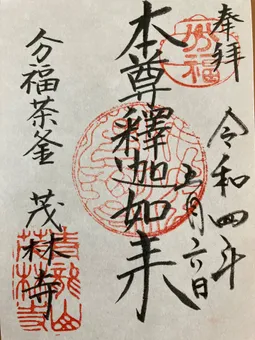 奉拝
令和四年
五月六日
本尊釋迦如来
分福茶釜
茂林寺
分福
青龍山
茂林寺